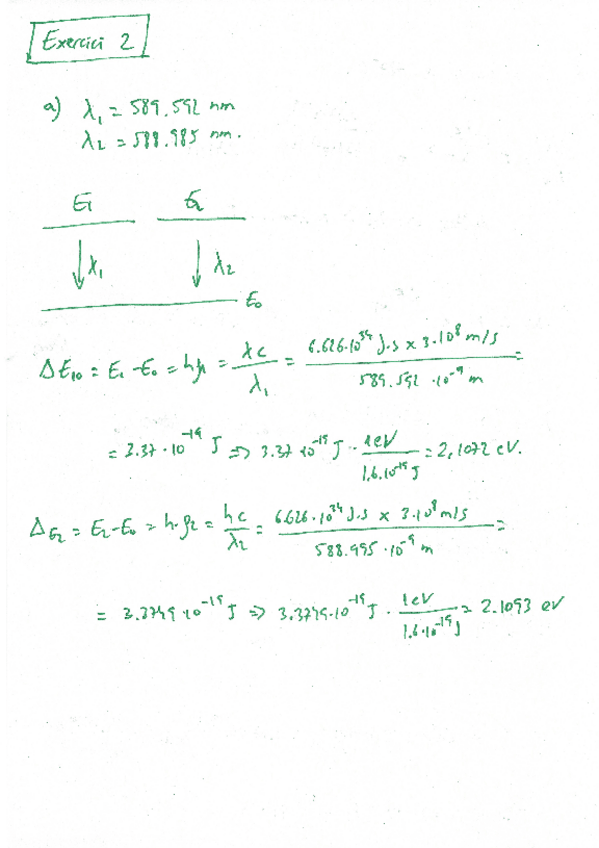 Exercici 2
a) λ₁ = 589.592 nm
λ₂ = 588.985 nm.
E₁ E₂
λ₁ λ₂
E₀
ΔE₁₀ = E₁ - E₀ = hf₁ = hc/λ₁ = 6.626·10³⁴ J·s × 3·10⁸ m/s / 589.592 ·10⁻⁹ m =
= 3.37·10⁻¹⁹ J => 3.37·10⁻¹⁹ J · 1eV / 1.6·10⁻¹⁹ J = 2,1072 eV.
ΔE₂ = E₂-E₀ = h·f₂ = hc/λ₂ = 6.626·10³⁴ J·s × 3·10⁸ m/s / 588.995·10⁻⁹ m =
= 3.3749·10⁻¹⁹ J => 3.3749·10⁻¹⁹ J · 1eV / 1.6·10⁻¹⁹ J = 2.1093 eV